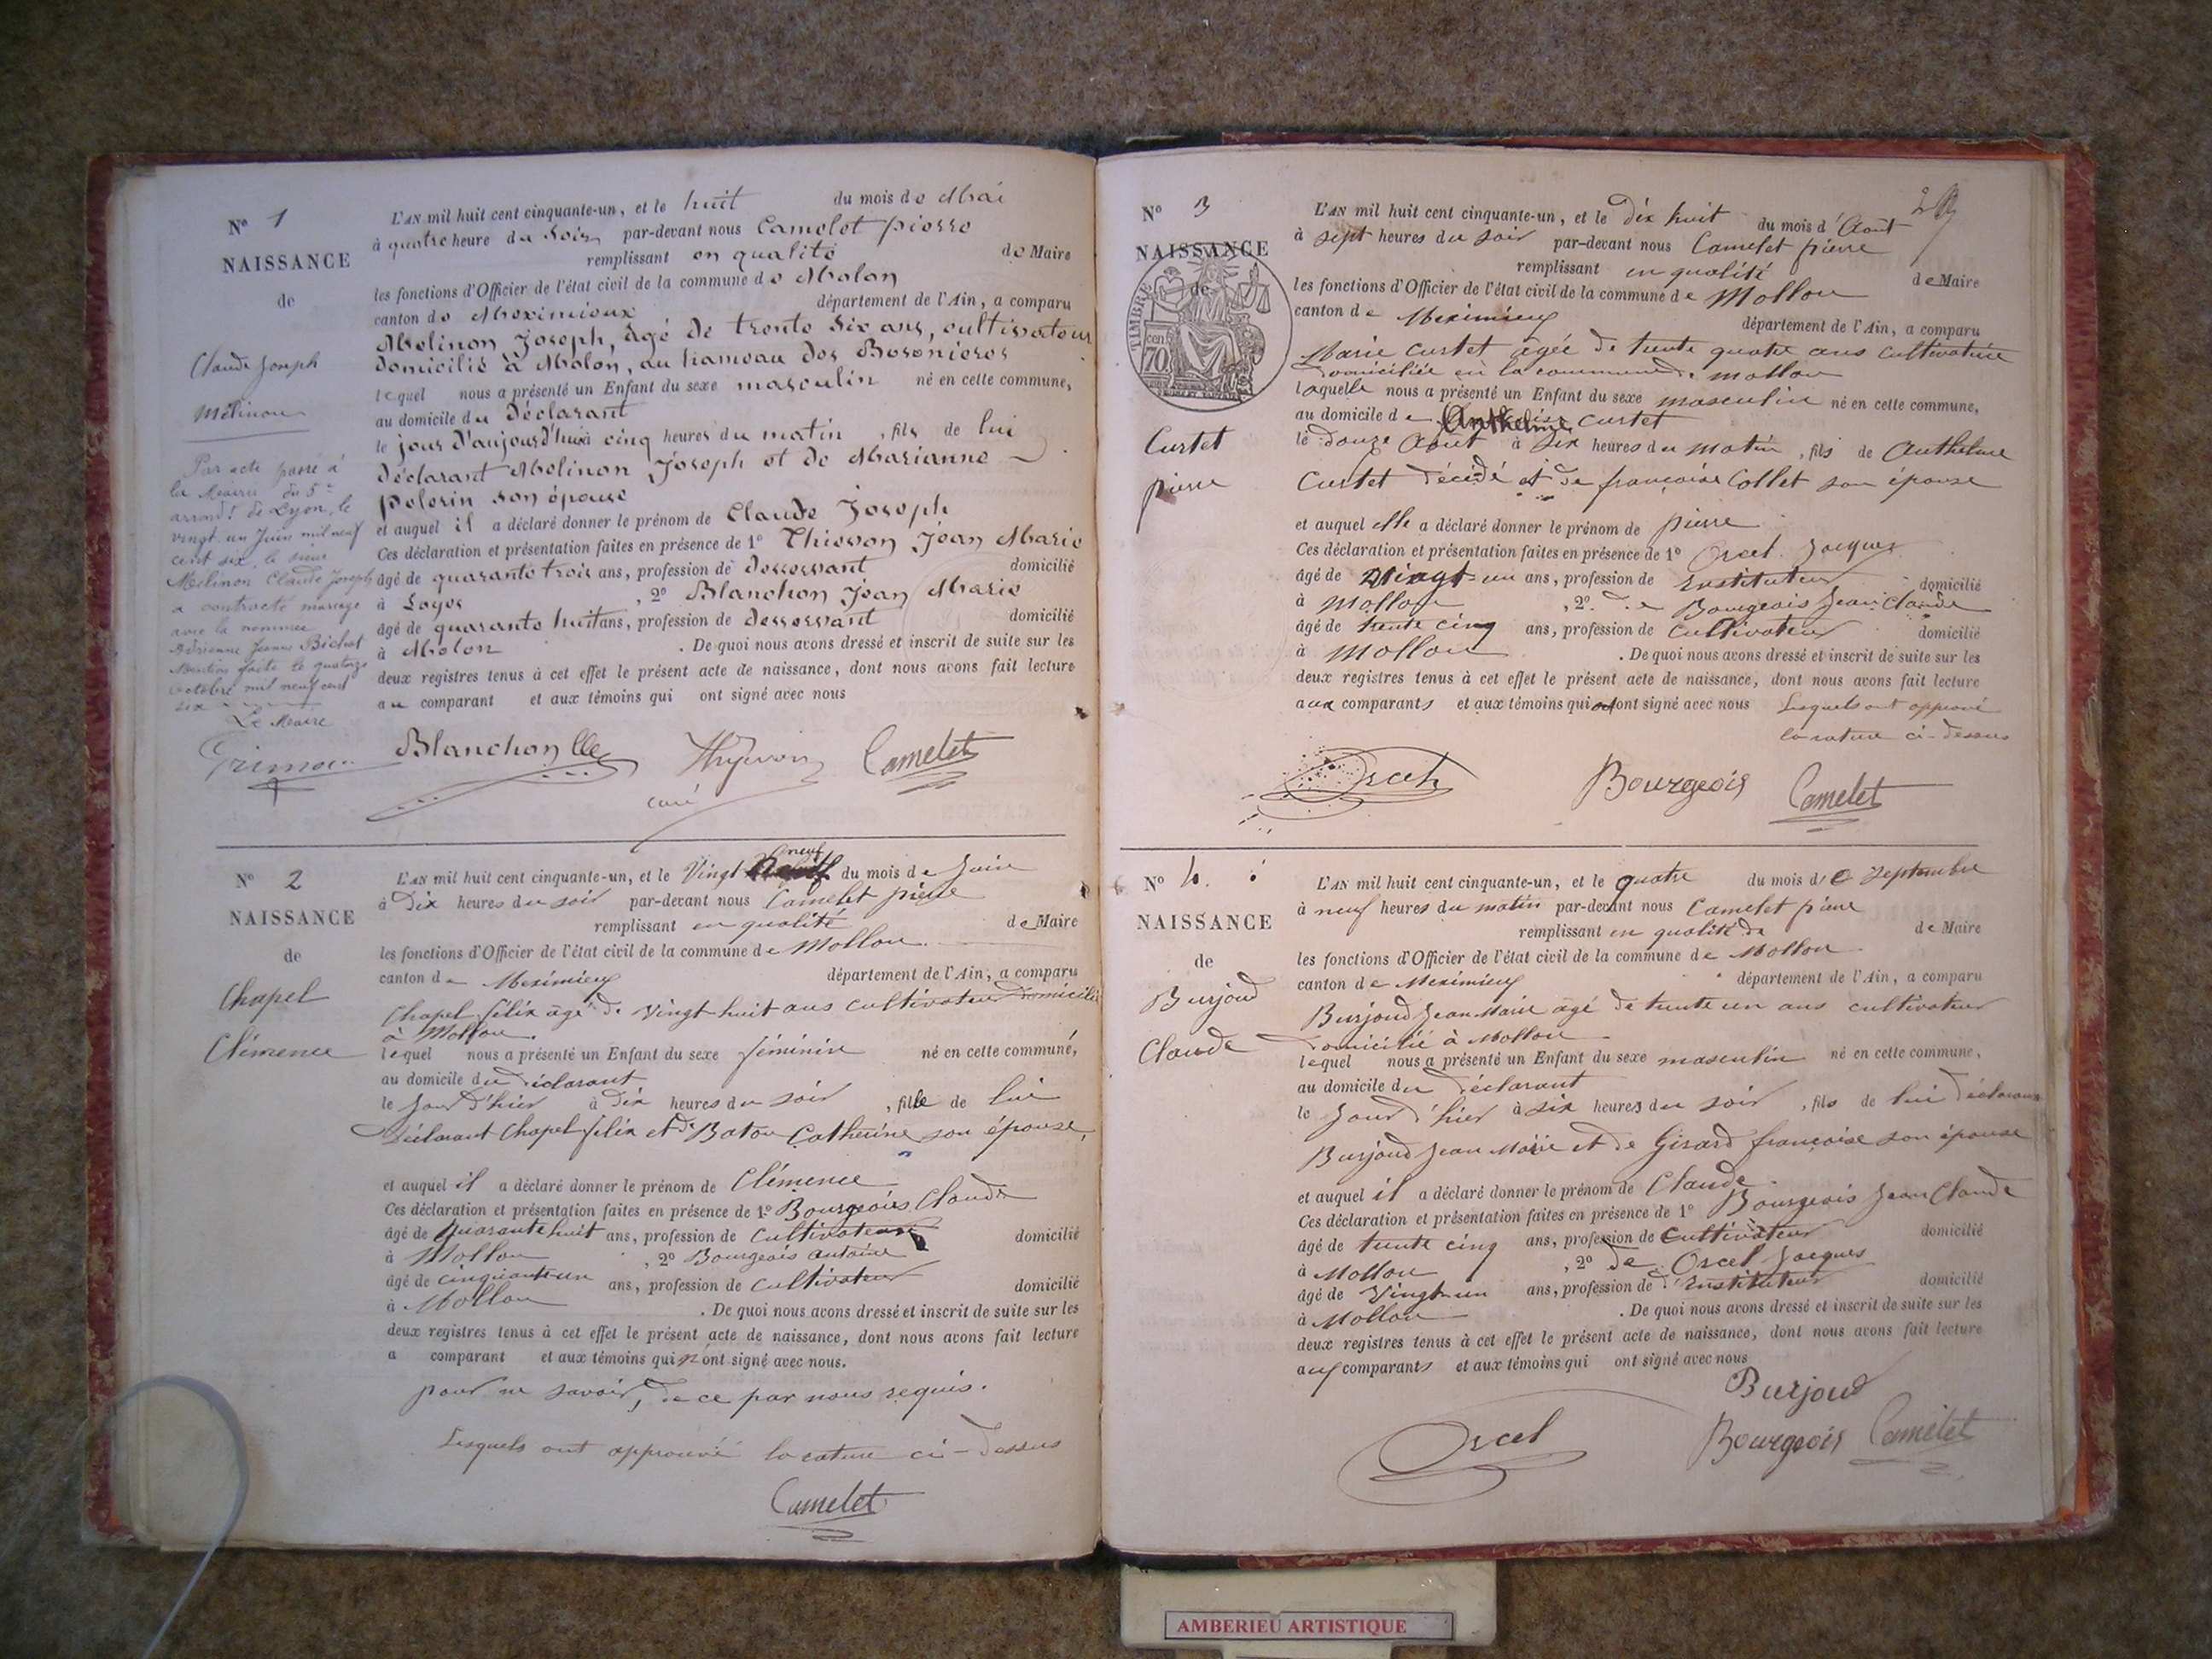 Nº 1
NAISSANCE
de
Claude Joseph
Mélinon
Par acte passé à
la Mairie du 5e
arrondt de Lyon, le
vingt un Juin mil neuf
cent six, le sieur
Mélinon Claude Joseph
a contracté mariage
avec la nommée
Adrienne Jeanne Bichat
Mention faite le quatorze
octobre mil neuf cent
six
Le Maire
L'AN mil huit cent cinquante-un, et le huit du mois de Mai
à quatre heure du Soir par-devant nous Camelet pierre
remplissant en qualité de Maire
les fonctions d'Officier de l'état civil de la commune de Molon
canton de Meximieux département de l'Ain, a comparu
Melinon Joseph, âgé de trente Six ans, cultivateur
domicilié à Molon, au hameau des
lequel nous a présenté un Enfant du sexe masculin né en cette commune,
au domicile du Déclarant
le jour d'aujourd'hui à cinq heures du matin, fils de lui
déclarant Melinon Joseph et de Marianne
pelerin son épouse
et auquel il a déclaré donner le prénom de Claude Joseph
Ces déclaration et présentation faites en présence de 1º Thievon Jean Marie
âgé de quarante trois ans, profession de desservant domicilié
à Loyes, 2º Blanchon Jean Marie
âgé de quarante huit ans, profession de desservant domicilié
à Molon. De quoi nous avons dressé et inscrit de suite sur les
deux registres tenus à cet effet le présent acte de naissance, dont nous avons fait lecture
au comparant et aux témoins qui ont signé avec nous
Blanchon Camelet
curé
Nº 2
NAISSANCE
de
Chapel
Clémence
L'AN mil huit cent cinquante-un, et le Vingt neuf du mois de Juin
à Dix heures du soir par-devant nous Camelet pierre
remplissant en qualité de Maire
les fonctions d'Officier de l'état civil de la commune de Mollon
canton de Meximieux département de l'Ain, a comparu
Chapel félix âgé de Vingt huit ans cultivateur domicilié
à Mollon.
lequel nous a présenté un Enfant du sexe féminin né en cette commune,
au domicile du déclarant
le Jour d'hier à dix heures du soir, fille de lui
déclarant Chapel félix et de Baton Catherine son épouse,
et auquel il a déclaré donner le prénom de Clémence
Ces déclaration et présentation faites en présence de 1º Bourgeois Claude
âgé de Quarante huit ans, profession de Cultivateur domicilié
à Mollon, 2º Bourgeois antoine
âgé de cinquante un ans, profession de Cultivateur domicilié
à Mollon. De quoi nous avons dressé et inscrit de suite sur les
deux registres tenus à cet effet le présent acte de naissance, dont nous avons fait lecture
a comparant et aux témoins qui n'ont signé avec nous.
pour ne savoir, de ce par nous requis.
Lesquels ont approuvé la rature ci-dessus
Camelet
Nº 3
NAISSANCE
de
TIMBRE
70
cen
Curtet
pierre
L'AN mil huit cent cinquante-un, et le dix huit du mois d'Août
à sept heures du soir par-devant nous Camelet pierre
remplissant en qualité de Maire
les fonctions d'Officier de l'état civil de la commune de Mollon
canton de Meximieux département de l'Ain, a comparu
Marie Curtet âgée de trente quatre ans cultivatrice
domiciliée en la commune de mollon
laquelle nous a présenté un Enfant du sexe masculin né en cette commune,
au domicile de Anthelme Curtet
le douze Août à Six heures du matin, fils de Anthelme
Curtet décédé et de françoise Collet son épouse
et auquel elle a déclaré donner le prénom de pierre
Ces déclaration et présentation faites en présence de 1º Orcel Jacques
âgé de vingt un ans, profession de Instituteur domicilié
à Mollon, 2º de Bourgeois Jean Claude
âgé de trente cinq ans, profession de Cultivateur domicilié
à Mollon. De quoi nous avons dressé et inscrit de suite sur les
deux registres tenus à cet effet le présent acte de naissance, dont nous avons fait lecture
aux comparants et aux témoins qui ont signé avec nous Lesquels ont approuvé
la rature ci-dessus
Orcel Bourgeois Camelet
Nº 4.
NAISSANCE
de
Burjoud
Claude
L'AN mil huit cent cinquante-un, et le quatre du mois de Septembre
à neuf heures du matin par-devant nous Camelet pierre
remplissant en qualité de de Maire
les fonctions d'Officier de l'état civil de la commune de Mollon
canton de Meximieux département de l'Ain, a comparu
Burjoud Jean Marie âgé de trente un ans cultivateur
domicilié à Mollon
lequel nous a présenté un Enfant du sexe masculin né en cette commune,
au domicile du déclarant
le Jour d'hier à six heures du soir, fils de lui déclarant
Burjoud Jean Marie et de Girard françoise son épouse
et auquel il a déclaré donner le prénom de Claude
Ces déclaration et présentation faites en présence de 1º Bourgeois Jean Claude
âgé de trente cinq ans, profession de Cultivateur domicilié
à Mollon, 2º de Orcel Jacques
âgé de Vingt un ans, profession de d'Instituteur domicilié
à Mollon. De quoi nous avons dressé et inscrit de suite sur les
deux registres tenus à cet effet le présent acte de naissance, dont nous avons fait lecture
aux comparants et aux témoins qui ont signé avec nous
Burjoud
Orcel Bourgeois Camelet
AMBERIEU ARTISTIQUE